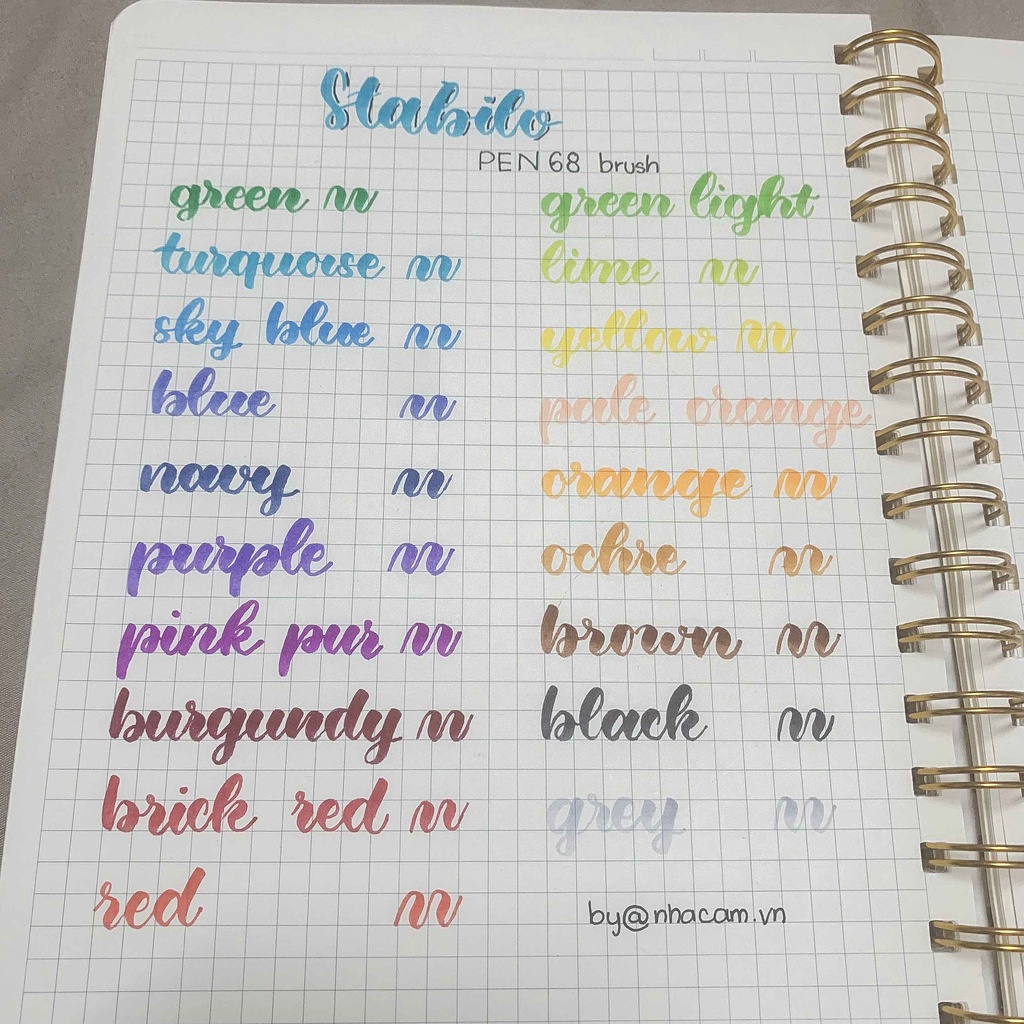 Stabilo
PEN 68 brush
green
turquoise
sky blue
blue
navy
purple
pink pur
burgundy
brick red
red
green light
lime
yellow
pale orange
orange
ochre
brown
black
grey
by@nhacam.vn